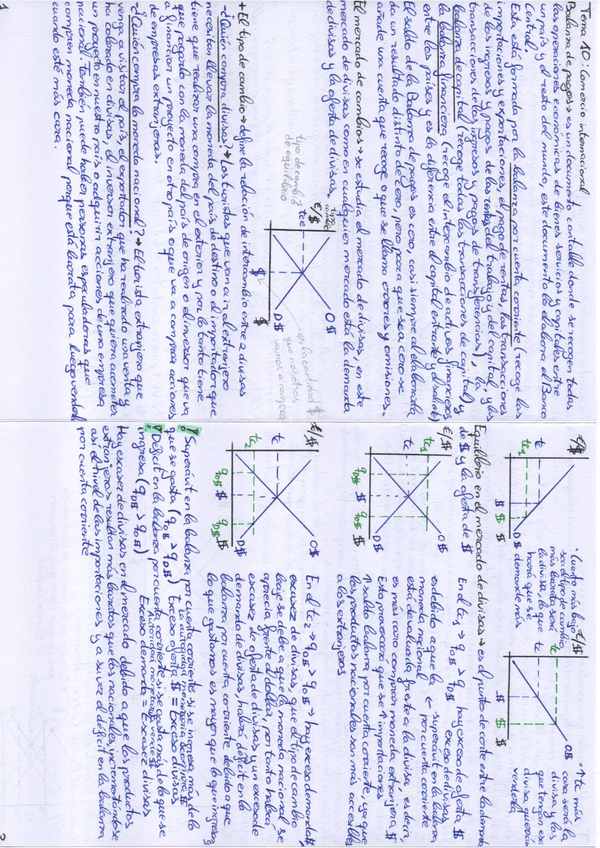 Tema 10: Comercio internacional
Balanza de pagos → es un documento contable donde se recogen todas
las operaciones económicas de bienes servicios y capitales entre
un país y el resto del mundo, este documento lo elabora el Banco
Central.
Esta está formada por la balanza por cuenta corriente (recoge las
importaciones y exportaciones, el pago de rentas, las transacciones
de los ingresos y pagos de las rentas del trabajo y del capital y las
transacciones de los ingresos y pagos de transferencias), la
balanza de capital (recoge todas las transacciones de capital) y
la balanza financiera (recoge el intercambio de activos financieros
entre los países y es la diferencia entre el capital entrante y saliente)
El saldo de la Balanza de pagos es cero, casi siempre al elaborarla
da un resultado distinto de cero, pero para que sea cero se
añade una cuenta que recoge o que se llama errores y omisiones.
El mercado de cambios → se estudia el mercado de divisas, en este
mercado de divisas como en cualquier mercado está la demanda
de divisas y la oferta de divisas.
tipo cambio
€/$
O$
tipo de cambio
de equilibrio
tce
D$
$
es la cantidad $
que nosotros
vamos a comprar
+ El tipo de cambio → define la relación de intercambio entre 2 divisas
- ¿Quién compra divisas? → Los turistas que van a ir al extranjero
necesitan llevar la moneda del país de destino o el importador que
tiene que realizar una compra en el exterior y por lo tanto tiene
que pagar con la moneda del país de origen o el inversor que va
a financiar un proyecto en otro país o que va a comprar acciones
de empresas extranjeras.
- ¿Quién compra la moneda nacional? → El turista extranjero que
venga a visitar el país, el exportador que ha realizado una venta y
ha cobrado en divisas, el inversor extranjero que quiera acometer
un proyecto en nuestro país o adquirir acciones de una empresa
nacional. También puede haber personas especuladoras que
compren moneda nacional porque está barata para luego venderla
cuando esté más cara.
1
€/$
tc
tc1
D$
$
• Cuanto más bajo
sea el tipo de cambio,
más barata será
la divisa, lo que
hará que se
demande más
€/$
tc
O$
$
• ↑ tc más
cara será la
divisa y los
que tengan esa
divisa querrán
venderla
Equilibrio en el mercado de divisas → es el punto de corte entre la demanda
de $ y la oferta de $
€/$
tc1
tc
O$
D$
qD$ qO$ $
En el tc1 → qO$ > qD$ → hay exceso de oferta $
exceso de divisas,
es debido a que la ← superávit en la balanza
moneda nacional por cuenta corriente
está devaluada frente a la divisa, es decir,
es más caro comprar moneda extranjera $
Esto provocará que se ↑ importaciones y
↑ saldo balanza por cuenta corriente, ya que
los productos nacionales son más accesibles
a los extranjeros
€/$
tc
tc1
O$
D$
qO$ qD$ $
En el tc1 → qD$ > qO$ → hay exceso demanda $,
escasez de divisas, y que el tipo de cambio
baje se debe a que la moneda nacional se
aprecia frente al dólar, por tanto habrá
escasez de oferta de divisas y un exceso de
demanda de divisas, habrá déficit en la
balanza por cuenta corriente debido a que
lo que gastamos es mayor que lo que ingresamos
! Superávit en la balanza por cuenta corriente si se ingresa más de lo
que se gasta (qO$ > qD$) Exceso oferta $ = Exceso divisas
! Déficit en la balanza por cuenta corriente si se gasta más de lo que se
ingresa (qD$ > qO$) Exceso demanda $ = escasez divisas
Hay escasez de divisas en el mercado debido a que los productos
extranjeros resultan más baratos que los nacionales, incrementándose
así el nivel de las importaciones y a su vez el déficit en la balanza
por cuenta corriente
2